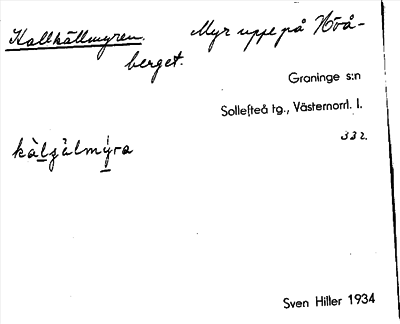 Kallkällmyren. Myr uppe på Hövå-
berget.
Graninge s:n
Sollefteå tg., Västernorrl. l.
332.
kàlʒàlmýra
Sven Hiller 1934